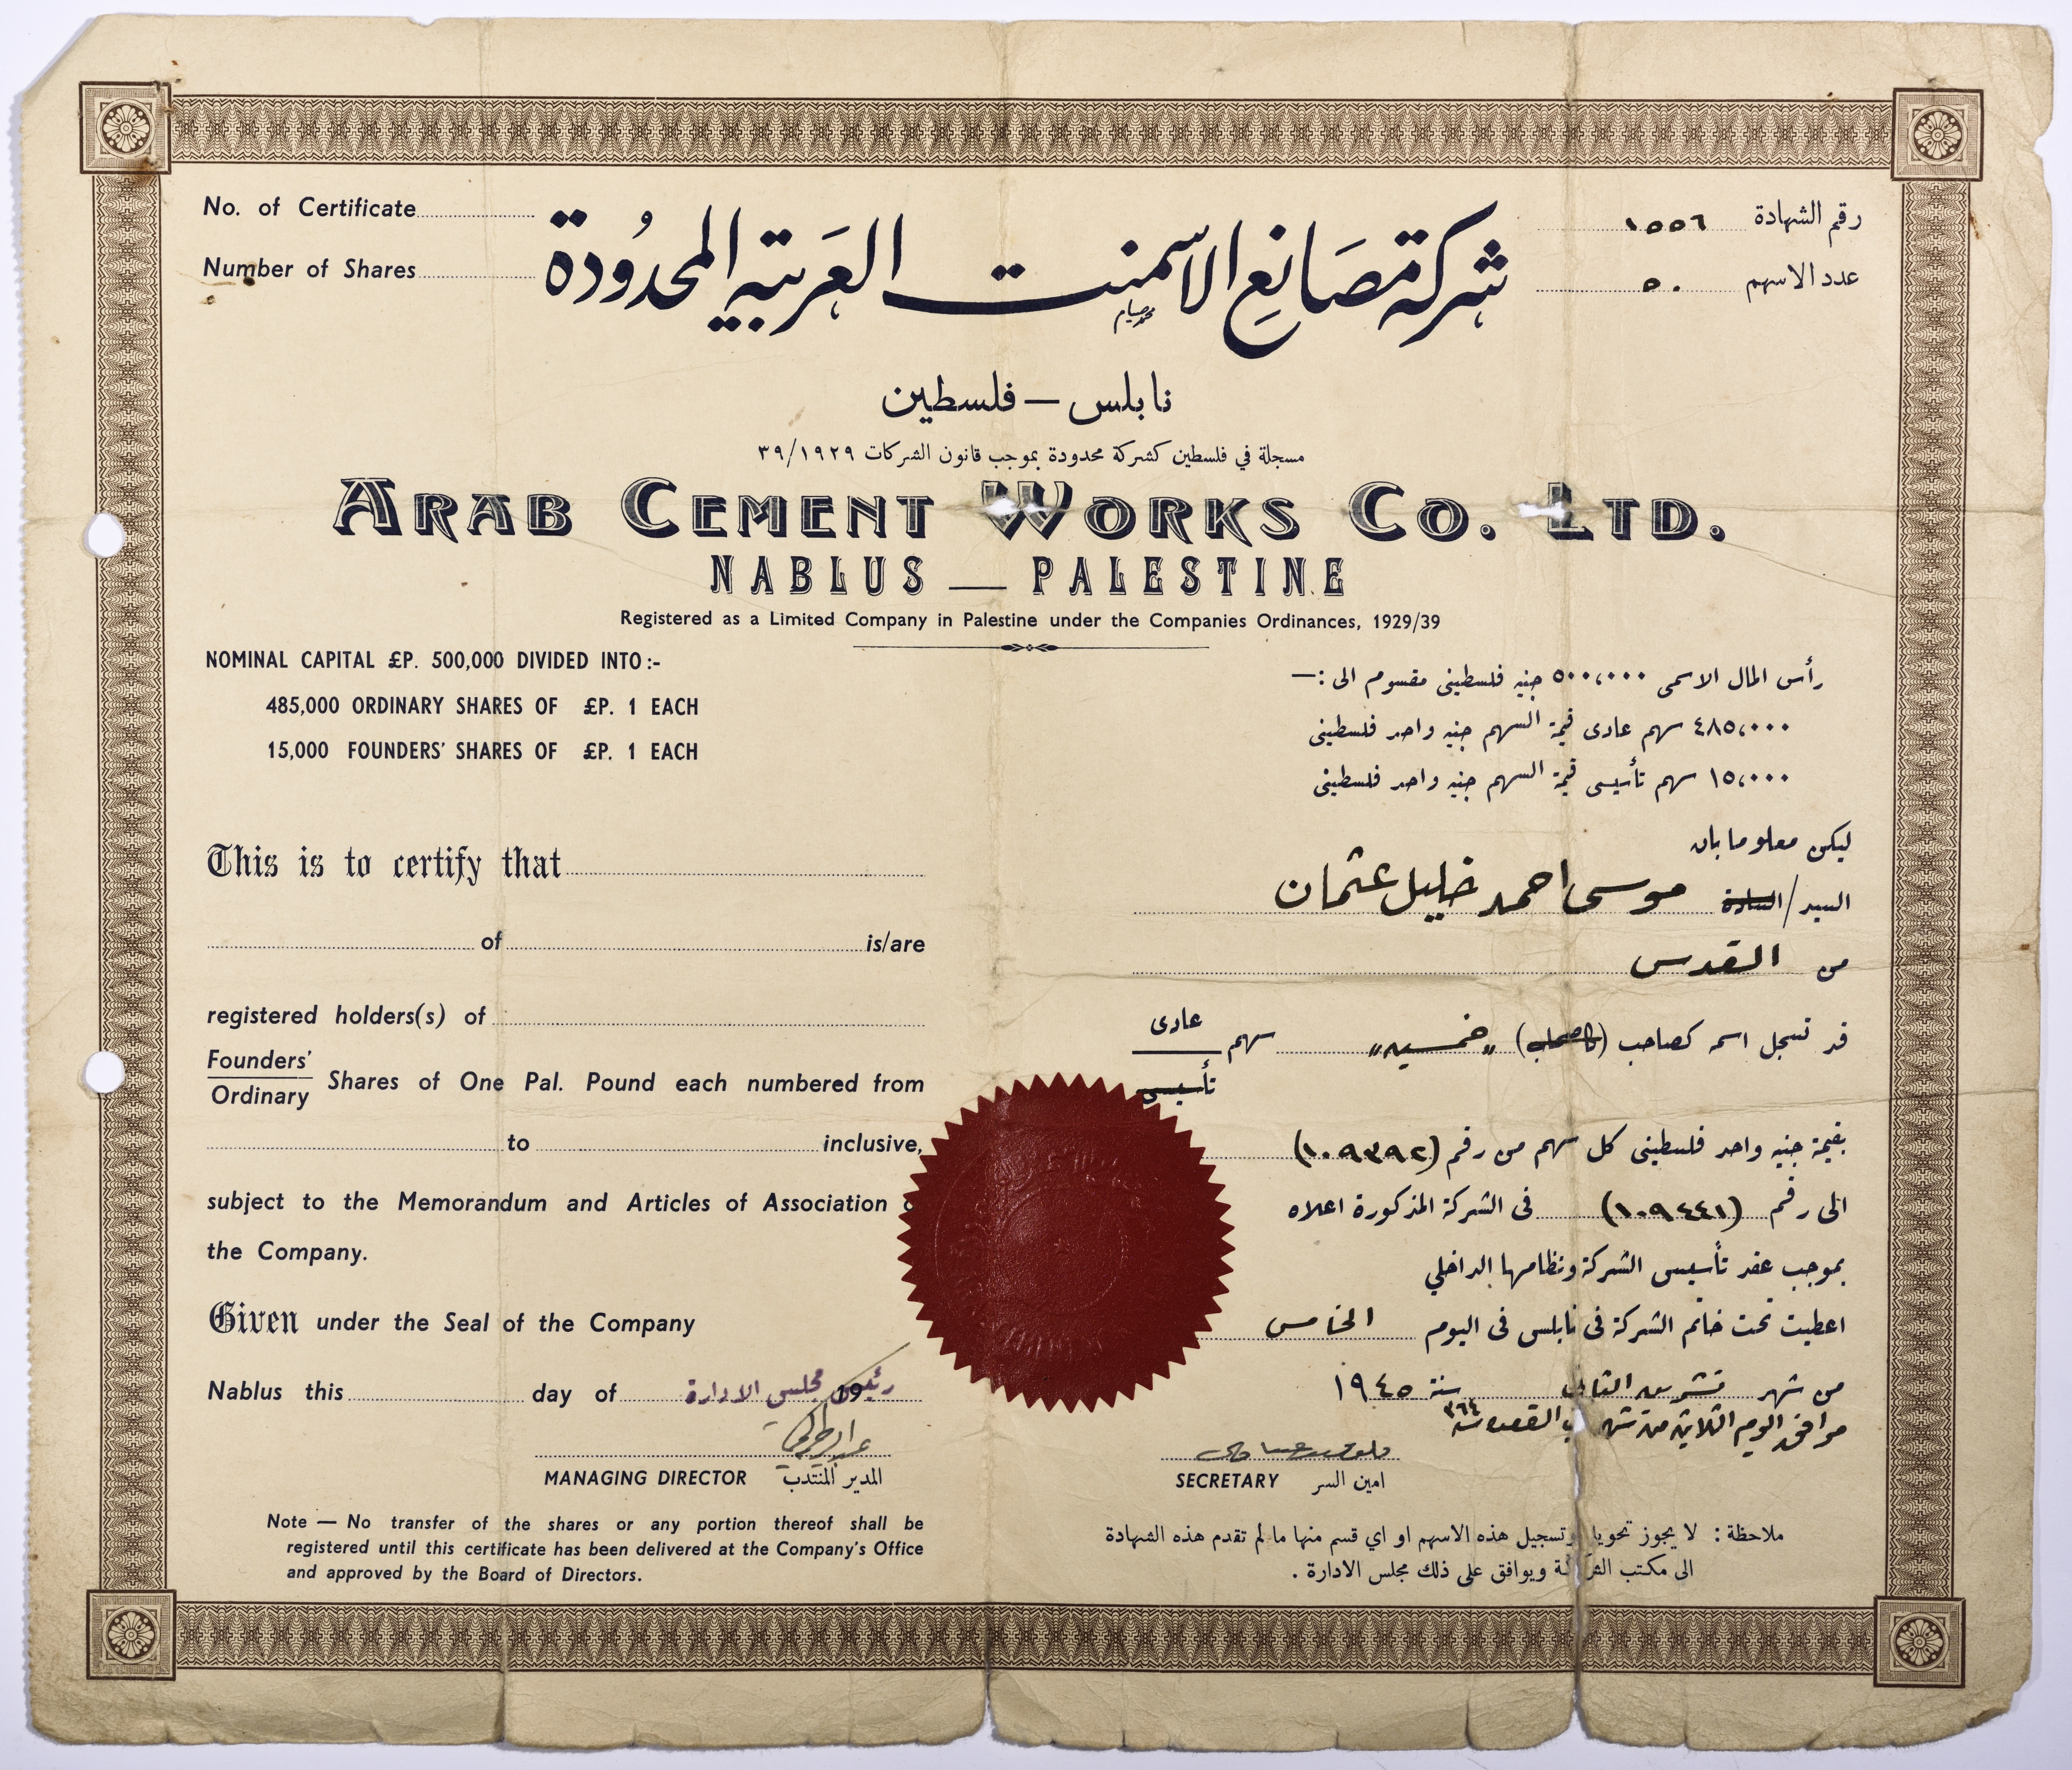 No. of Certificate
Number of Shares
رقم الشهادة ١٥٥٦
عدد الاسهم ٥٠
شركة مصانع الاسمنت العربية المحدودة
نابلس — فلسطين
مسجلة في فلسطين كشركة محدودة بموجب قانون الشركات ١٩٢٩/٣٩
ARAB CEMENT WORKS CO. LTD.
NABLUS — PALESTINE
Registered as a Limited Company in Palestine under the Companies Ordinances, 1929/39
NOMINAL CAPITAL £P. 500,000 DIVIDED INTO:-
485,000 ORDINARY SHARES OF £P. 1 EACH
15,000 FOUNDERS' SHARES OF £P. 1 EACH
This is to certify that
of is/are
registered holders(s) of
Founders'
Ordinary
Shares of One Pal. Pound each numbered from
to inclusive,
subject to the Memorandum and Articles of Association
the Company.
Given under the Seal of the Company
Nablus this day of 19
رئيس مجلس الادارة
MANAGING DIRECTOR المدير المنتدب
Note — No transfer of the shares or any portion thereof shall be
registered until this certificate has been delivered at the Company's Office
and approved by the Board of Directors.
رأس المال الاسمى ٥٠٠،٠٠٠ جنيه فلسطينى مقسوم الى :—
٤٨٥،٠٠٠ سهم عادى قيمة السهم جنيه واحد فلسطينى
١٥،٠٠٠ سهم تأسيسى قيمة السهم جنيه واحد فلسطينى
ليكن معلوما بان
السيد/السادة موسى احمد خليل عثمان
من القدس
قد تسجل اسمه كصاحب (كاصحاب) "خمسين" سهم عادى
تأسيسى
بقيمة جنيه واحد فلسطينى كل سهم من رقم (١٠٩٣٩٢)
الى رقم (١٠٩٤٤١) فى الشركة المذكورة اعلاه
بموجب عقد تأسيسى الشركة ونظامها الداخلي
اعطيت تحت خاتم الشركة فى نابلس فى اليوم الخامس
من شهر تشرين الثاني سنة ١٩٤٥
موافق اليوم الثلاثين من شهر القعدة سنة ٣٦٤
SECRETARY امين السر
ملاحظة : لا يجوز تحويل وتسجيل هذه الاسهم او اي قسم منها ما لم تقدم هذه الشهادة
الى مكتب الشركة ويوافق على ذلك مجلس الادارة .